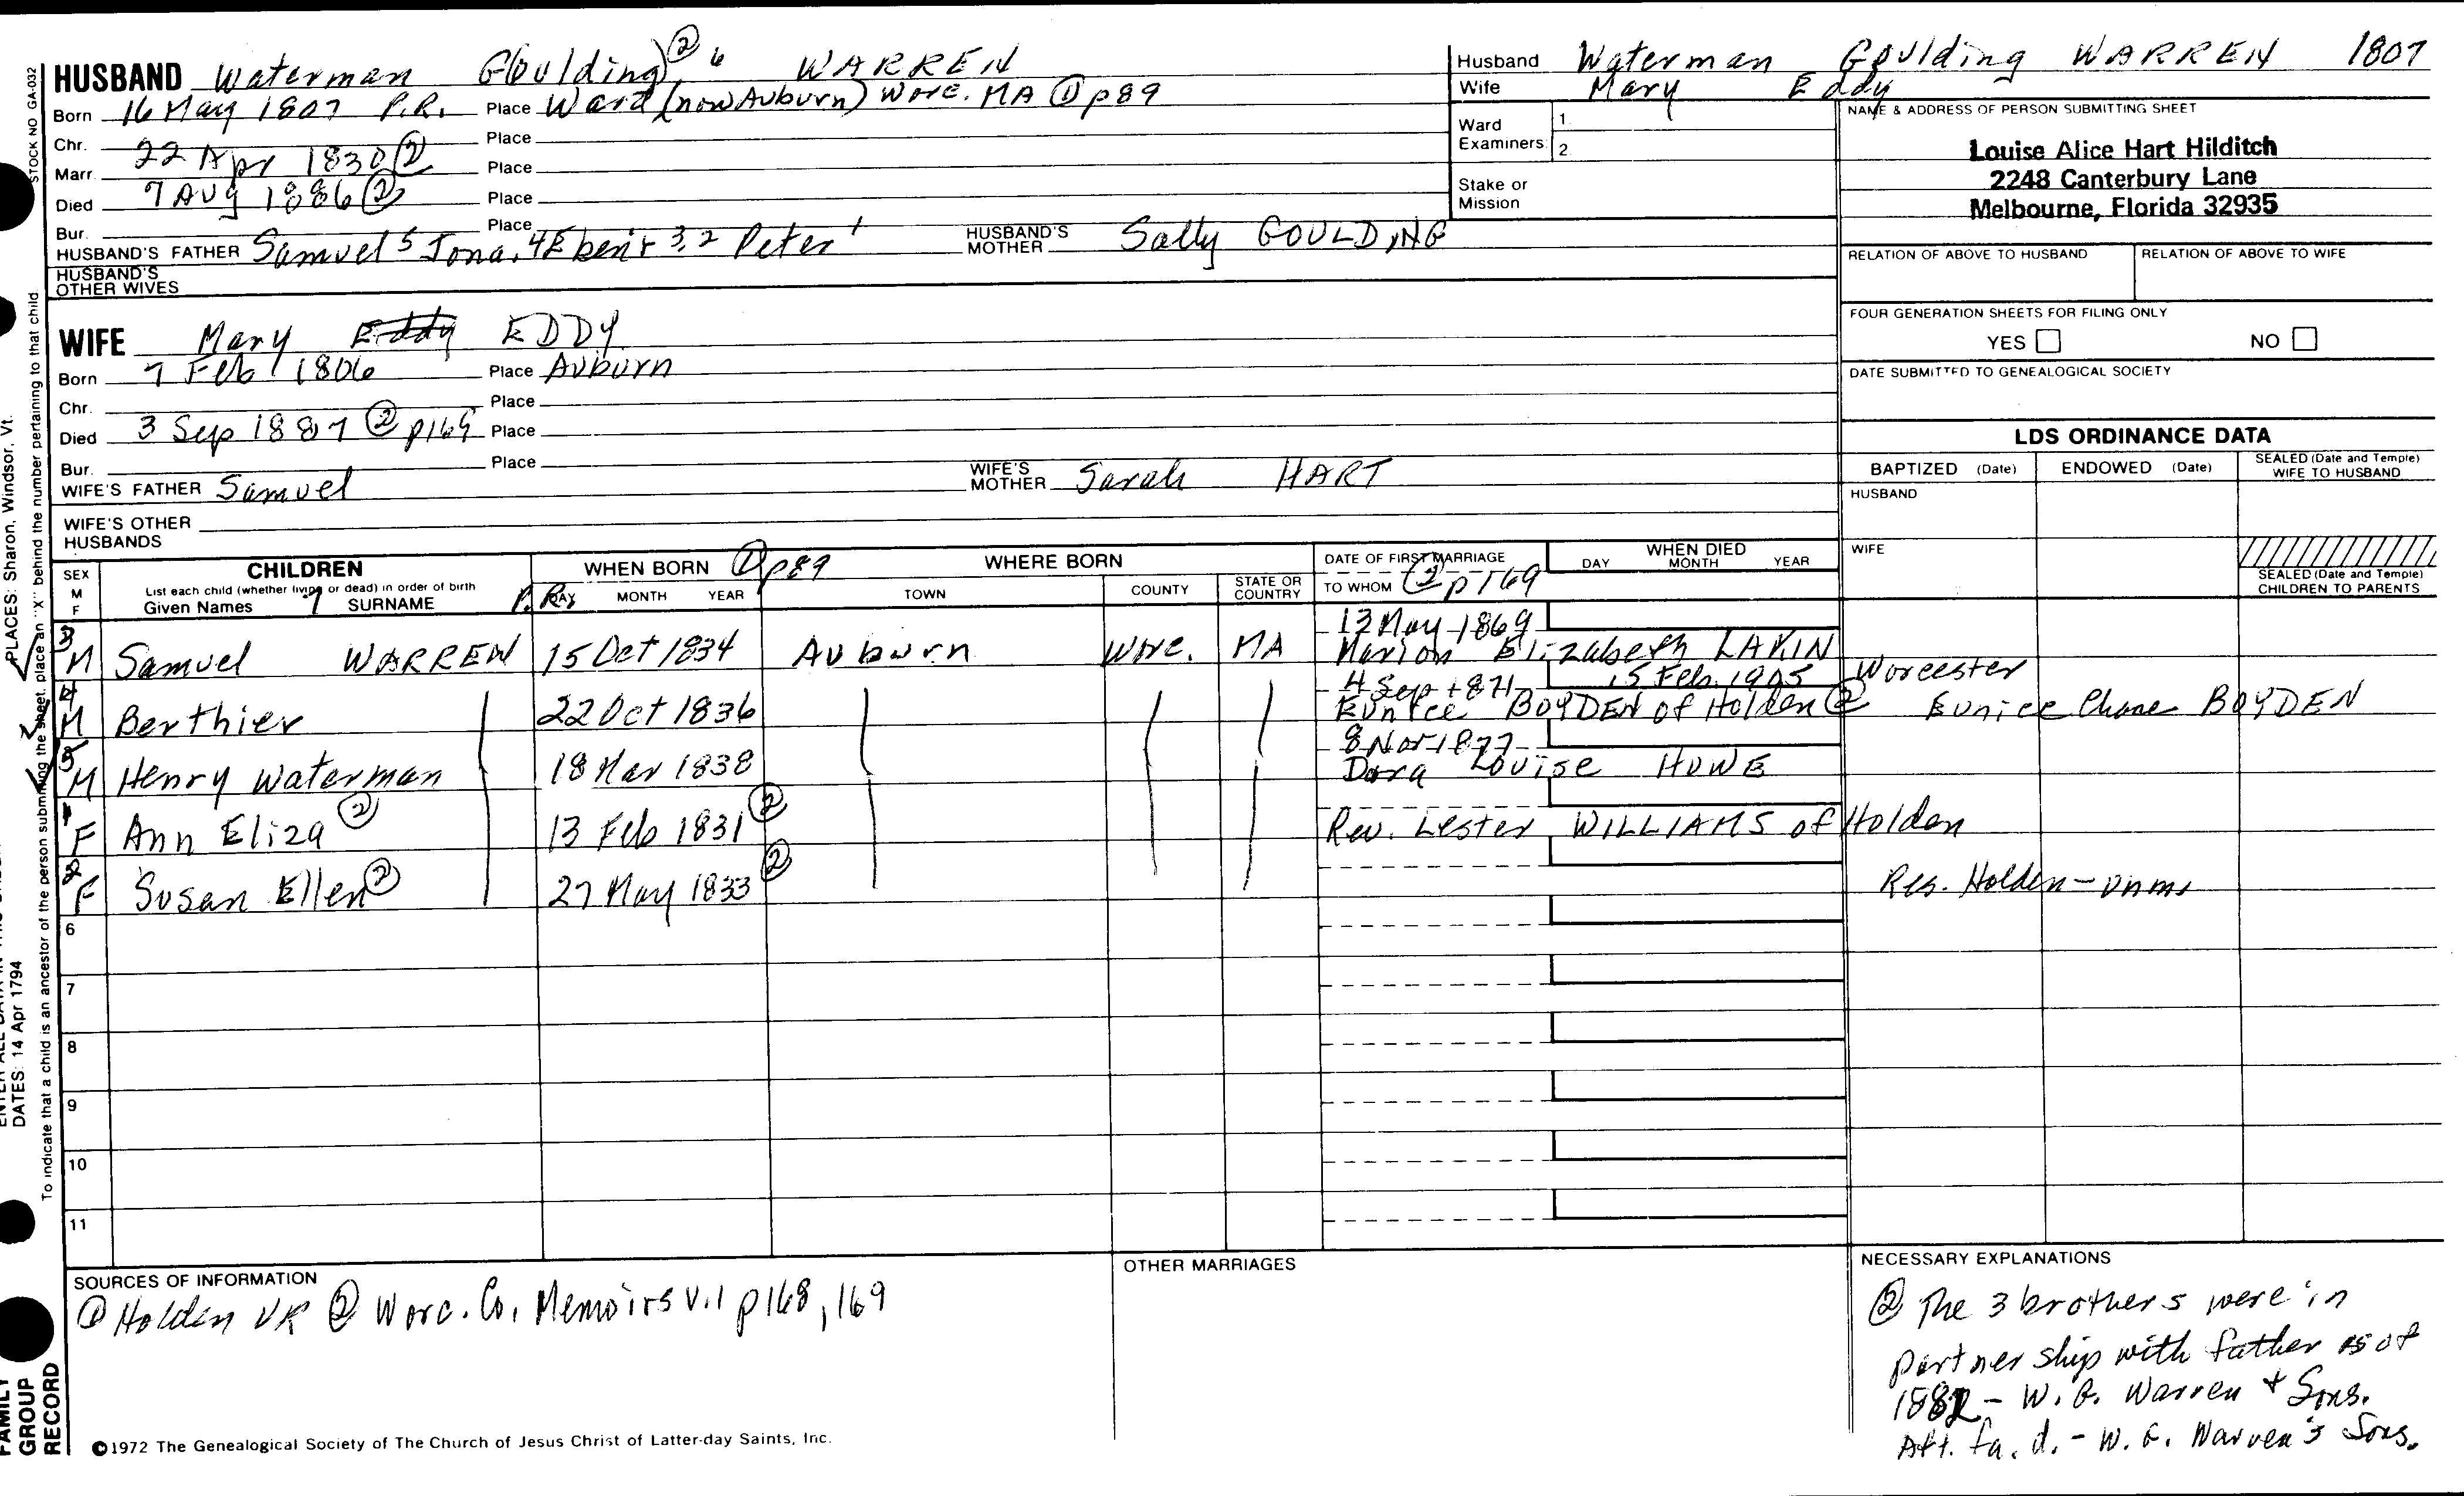 HUSBAND Waterman Goulding ② 6 WARREN
Born 16 May 1807 P.R. Place Ward (now Auburn) Worc. MA ① p89
Chr. Place
Marr. 22 Apr 1830 ② Place
Died 7 Aug 1886 ② Place
Bur. Place
HUSBAND'S FATHER Samuel 5 Jona. 4 Eben'r 3,2 Peter 1 HUSBAND'S MOTHER Sally GOULDING
HUSBAND'S OTHER WIVES
WIFE Mary Eddy EDDY
Born 7 Feb 1806 Place Auburn
Chr. Place
Died 3 Sep 1887 ② p169 Place
Bur. Place
WIFE'S FATHER Samuel WIFE'S MOTHER Sarah HART
WIFE'S OTHER HUSBANDS
Husband Waterman Goulding WARREN 1807
Wife Mary Eddy
Ward Examiners: 1. 2.
Stake or Mission
NAME & ADDRESS OF PERSON SUBMITTING SHEET
Louise Alice Hart Hilditch
2248 Canterbury Lane
Melbourne, Florida 32935
RELATION OF ABOVE TO HUSBAND RELATION OF ABOVE TO WIFE
FOUR GENERATION SHEETS FOR FILING ONLY
YES NO
DATE SUBMITTED TO GENEALOGICAL SOCIETY
LDS ORDINANCE DATA
BAPTIZED (Date) ENDOWED (Date) SEALED (Date and Temple) WIFE TO HUSBAND
HUSBAND
WIFE
SEALED (Date and Temple) CHILDREN TO PARENTS
SEX M F
CHILDREN
List each child (whether living or dead) in order of birth
Given Names 7 SURNAME
WHEN BORN ① p89
P.R. DAY MONTH YEAR
WHERE BORN
TOWN COUNTY STATE OR COUNTRY
DATE OF FIRST MARRIAGE
TO WHOM ② p169
WHEN DIED
DAY MONTH YEAR
13 May 1869
3 M Samuel WARREN 15 Oct 1834 Auburn Worc. MA Marion Elizabeth LAKIN
4 Sep 1871 15 Feb. 1905 Worcester
4 M Berthier 22 Oct 1836 Eunice BOYDEN of Holden ② Eunice Chase BOYDEN
8 Nov 1877
5 M Henry Waterman 18 Mar 1838 Dora Louise HOWE
1 F Ann Eliza ② 13 Feb 1831 ② Rev. Lester WILLIAMS of Holden
2 F Susan Ellen ② 27 May 1833 ② Res. Holden - unm.
6
7
8
9
10
11
SOURCES OF INFORMATION
① Holden VR ② Worc. Co. Memoirs v.1 p168, 169
OTHER MARRIAGES
NECESSARY EXPLANATIONS
② The 3 brothers were in
partnership with father as of
1882 - W. G. Warren & Sons.
Aft. fa. d. - W. G. Warren's Sons.
©1972 The Genealogical Society of The Church of Jesus Christ of Latter-day Saints, Inc.
STOCK NO GA-032
PLACES: Sharon, Windsor, Vt.
DATES: 14 Apr 1794
To indicate that a child is an ancestor of the person submitting the sheet, place an "X" behind the number pertaining to that child.
FAMILY GROUP RECORD